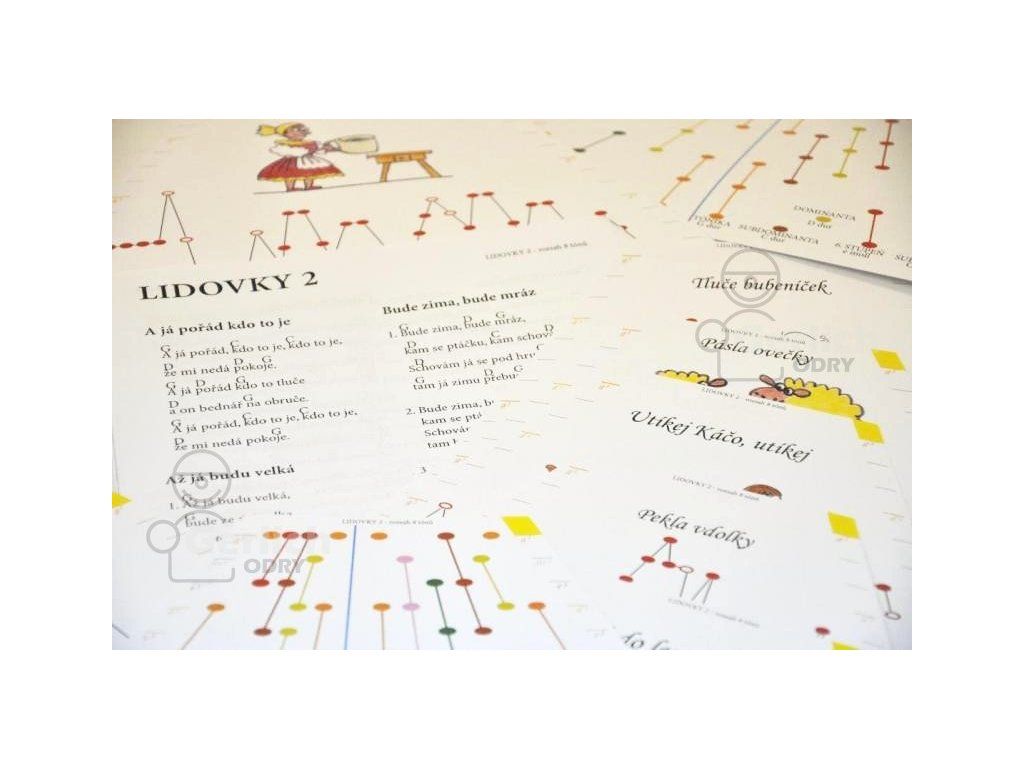 LIDOVKY 2 - rozsah 8 tónů
TONIKA
G dur
SUBDOMINANTA
C dur
DOMINANTA
D dur
6. STUPEŇ
e moll
LIDOVKY 2
A já pořád kdo to je
G C C
A já pořád, kdo to je, kdo to je,
D D G
že mi nedá pokoje.
G D G
A já pořád kdo to tluče
D
a on bednář na obruče.
G C C
A já pořád, kdo to je, kdo to je,
D G
že mi nedá pokoje.
Až já budu velká
1. Až já budu velká,
bude ze
Bude zima, bude mráz
G D G
1. Bude zima, bude mráz,
D C D
kam se ptáčku, kam schov
D
Schovám já se pod hr
G D G
tam já zimu přebu
2. Bude zima, b
kam se ptá
Schovár
tam
3
Tluče bubeníček
LIDOVKY 2 - rozsah 8 tónů
Pásla ovečky
LIDOVKY 2 - rozsah 8 tónů
Utíkej Káčo, utíkej
LIDOVKY 2 - rozsah 8 tónů
Pekla vdolky
LIDOVKY 2 - rozsah 8 tónů
LIDOVKY 2 - rozsah 8 tónů
6
ODRY
ODRY